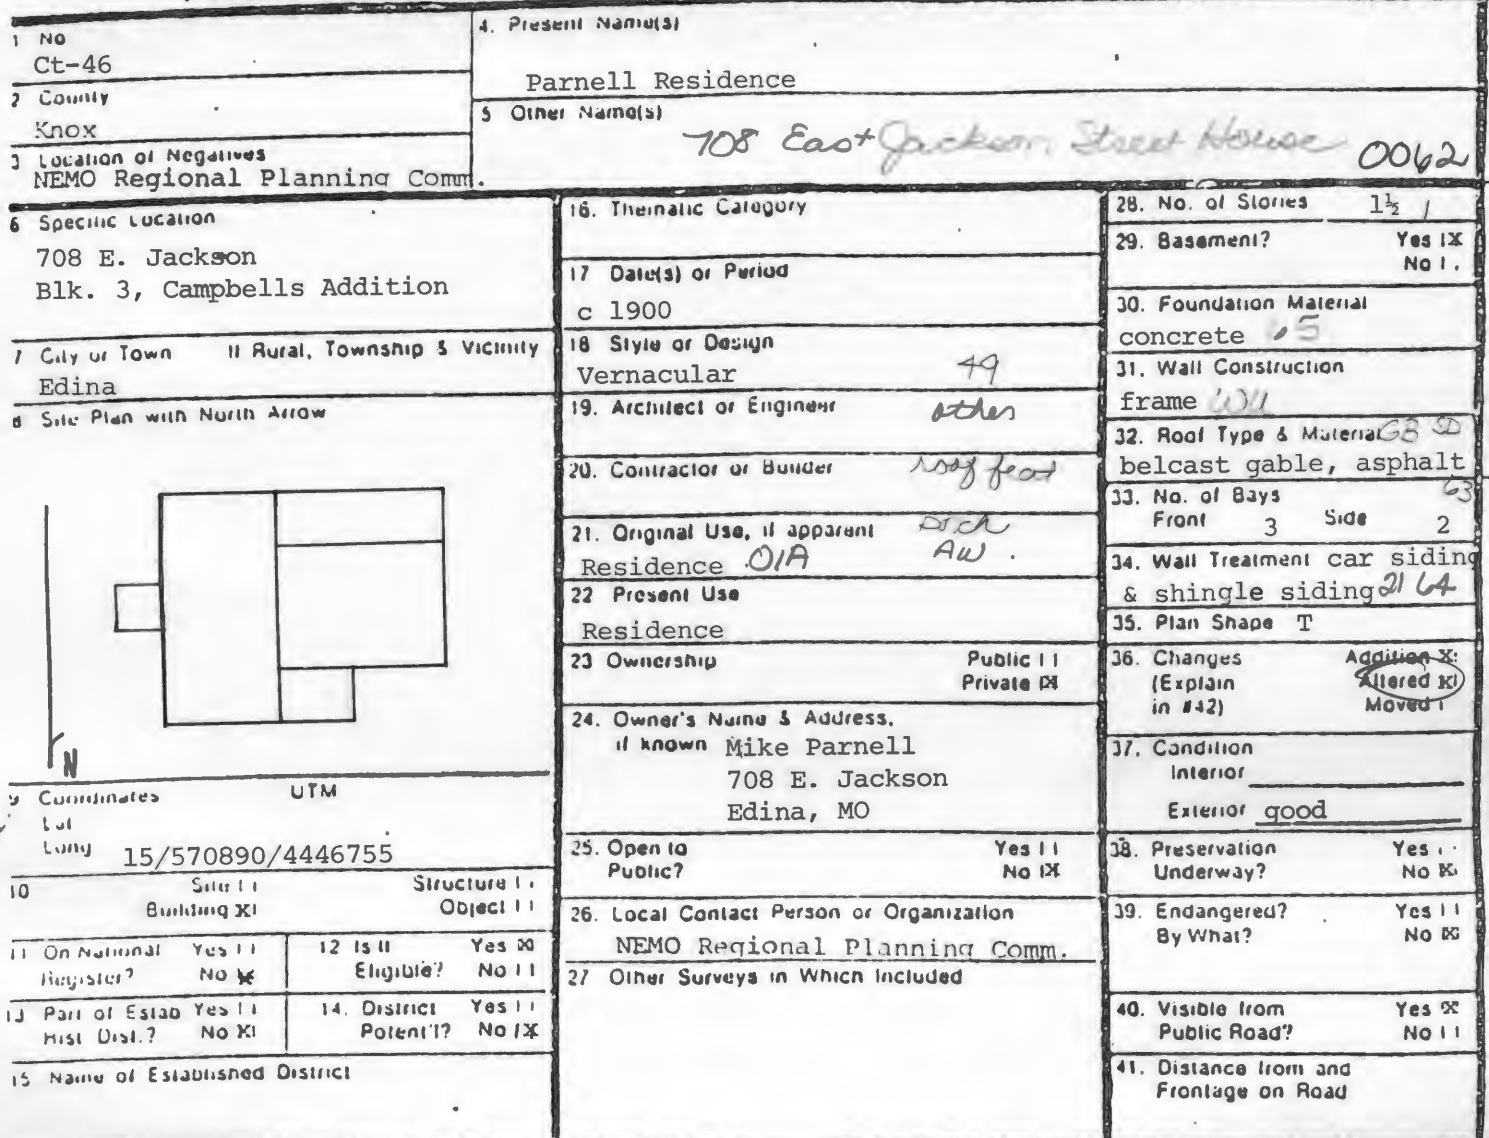 1 No
Ct-46
2 County
Knox
3 Location of Negatives
NEMO Regional Planning Comm.
4. Present Name(s)
Parnell Residence
5 Other Name(s)
708 East Jackson Street House 0062
6 Specific Location
708 E. Jackson
Blk. 3, Campbells Addition
7 City or Town If Rural, Township & Vicinity
Edina
8 Site Plan with North Arrow
N
9 Coordinates UTM
Lat
Long
15/570890/4446755
10 Site Structure
Building X Object
11 On National Register? Yes No X
12 Is It Eligible? Yes X No
13 Part of Estab Hist Dist.? Yes No X
14. District Potent'l? Yes No X
15 Name of Established District
16. Thematic Category
17 Date(s) or Period
c 1900
18 Style or Design
Vernacular 49
19. Architect or Engineer other
20. Contractor or Builder roof feat
21. Original Use, if apparent
Residence 01A AW
22 Present Use
Residence
23 Ownership Public
Private X
24. Owner's Name & Address,
if known Mike Parnell
708 E. Jackson
Edina, MO
25. Open to Yes
Public? No X
26. Local Contact Person or Organization
NEMO Regional Planning Comm.
27 Other Surveys in Which Included
28. No. of Stories 1½
29. Basement? Yes X
No
30. Foundation Material
concrete
31. Wall Construction
frame
32. Roof Type & Material GB
belcast gable, asphalt
63
33. No. of Bays
Front 3 Side 2
34. Wall Treatment car siding
& shingle siding 21 64
35. Plan Shape T
36. Changes Addition X
(Explain Altered X
in #42) Moved
37. Condition
Interior
Exterior good
38. Preservation Yes
Underway? No X
39. Endangered? Yes
By What? No X
40. Visible from Yes X
Public Road? No
41. Distance from and
Frontage on Road